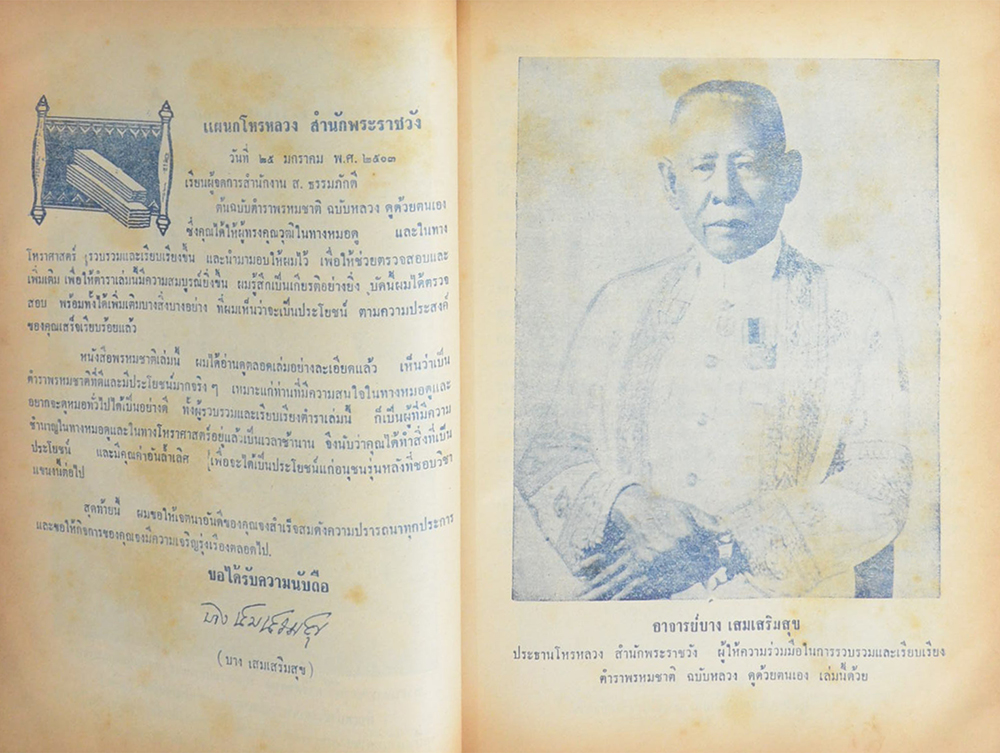 แผนกโหรหลวง สำนักพระราชวัง
วันที่ ๒๕ มกราคม พ.ศ. ๒๕๐๓
เรียนผู้จัดการสำนักงาน ส. ธรรมภักดี
ต้นฉบับตำราพรหมชาติ ฉบับหลวง ดูด้วยตนเอง
ซึ่งคุณได้ให้ผู้ทรงคุณวุฒิในทางหมอดู และในทาง
โหราศาสตร์ รวบรวมและเรียบเรียงขึ้น และนำมามอบให้ผมไว้ เพื่อให้ช่วยตรวจสอบและ
เพิ่มเติม เพื่อให้ตำราเล่มนี้มีความสมบูรณ์ยิ่งขึ้น ผมรู้สึกเป็นเกียรติอย่างยิ่ง บัดนี้ผมได้ตรวจ
สอบ พร้อมทั้งได้เพิ่มเติมบางสิ่งบางอย่าง ที่ผมเห็นว่าจะเป็นประโยชน์ ตามความประสงค์
ของคุณเสร็จเรียบร้อยแล้ว
หนังสือพรหมชาติเล่มนี้ ผมได้อ่านดูตลอดเล่มอย่างละเอียดแล้ว เห็นว่าเป็น
ตำราพรหมชาติที่ดีและมีประโยชน์มากจริง ๆ เหมาะแก่ท่านที่มีความสนใจในทางหมอดูและ
อยากจะดูหมอทั่วไปได้เป็นอย่างดี ทั้งผู้รวบรวมและเรียบเรียงตำราเล่มนี้ ก็เป็นผู้ที่มีความ
ชำนาญในทางหมอดูและในทางโหราศาสตร์อยู่แล้วเป็นเวลาช้านาน จึงนับว่าคุณได้ทำสิ่งที่เป็น
ประโยชน์ และมีคุณค่าอันล้ำเลิศ เพื่อจะได้เป็นประโยชน์แก่อนุชนรุ่นหลังที่ชอบวิชา
แขนงนี้ต่อไป
สุดท้ายนี้ ผมขอให้เจตนาอันดีของคุณจงสำเร็จสมดังความปรารถนาทุกประการ
และขอให้กิจการของคุณจงมีความเจริญรุ่งเรืองตลอดไป.
ขอได้รับความนับถือ
บาง เสมเสริมสุข
(บาง เสมเสริมสุข)
อาจารย์บาง เสมเสริมสุข
ประธานโหรหลวง สำนักพระราชวัง ผู้ให้ความร่วมมือในการรวบรวมและเรียบเรียง
ตำราพรหมชาติ ฉบับหลวง ดูด้วยตนเอง เล่มนี้ด้วย